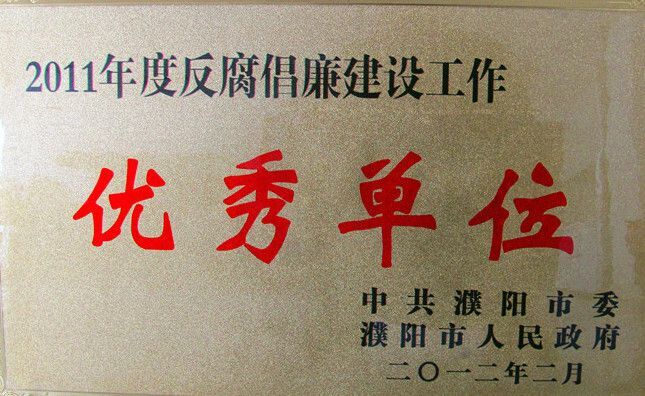 2011年度反腐倡廉建设工作
优秀单位
中共濮阳市委
濮阳市人民政府
二〇一二年二月